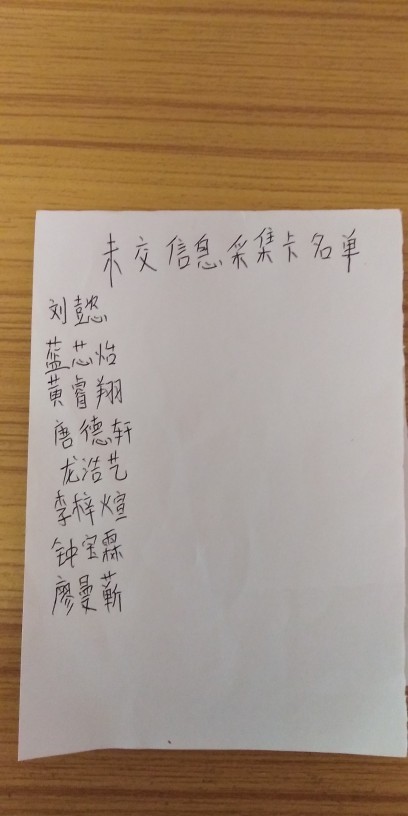 未交信息采集卡名单
刘懿
蓝芯怡
黄睿翔
唐德轩
龙浩艺
李梓煊
钟宝霖
廖曼蕲